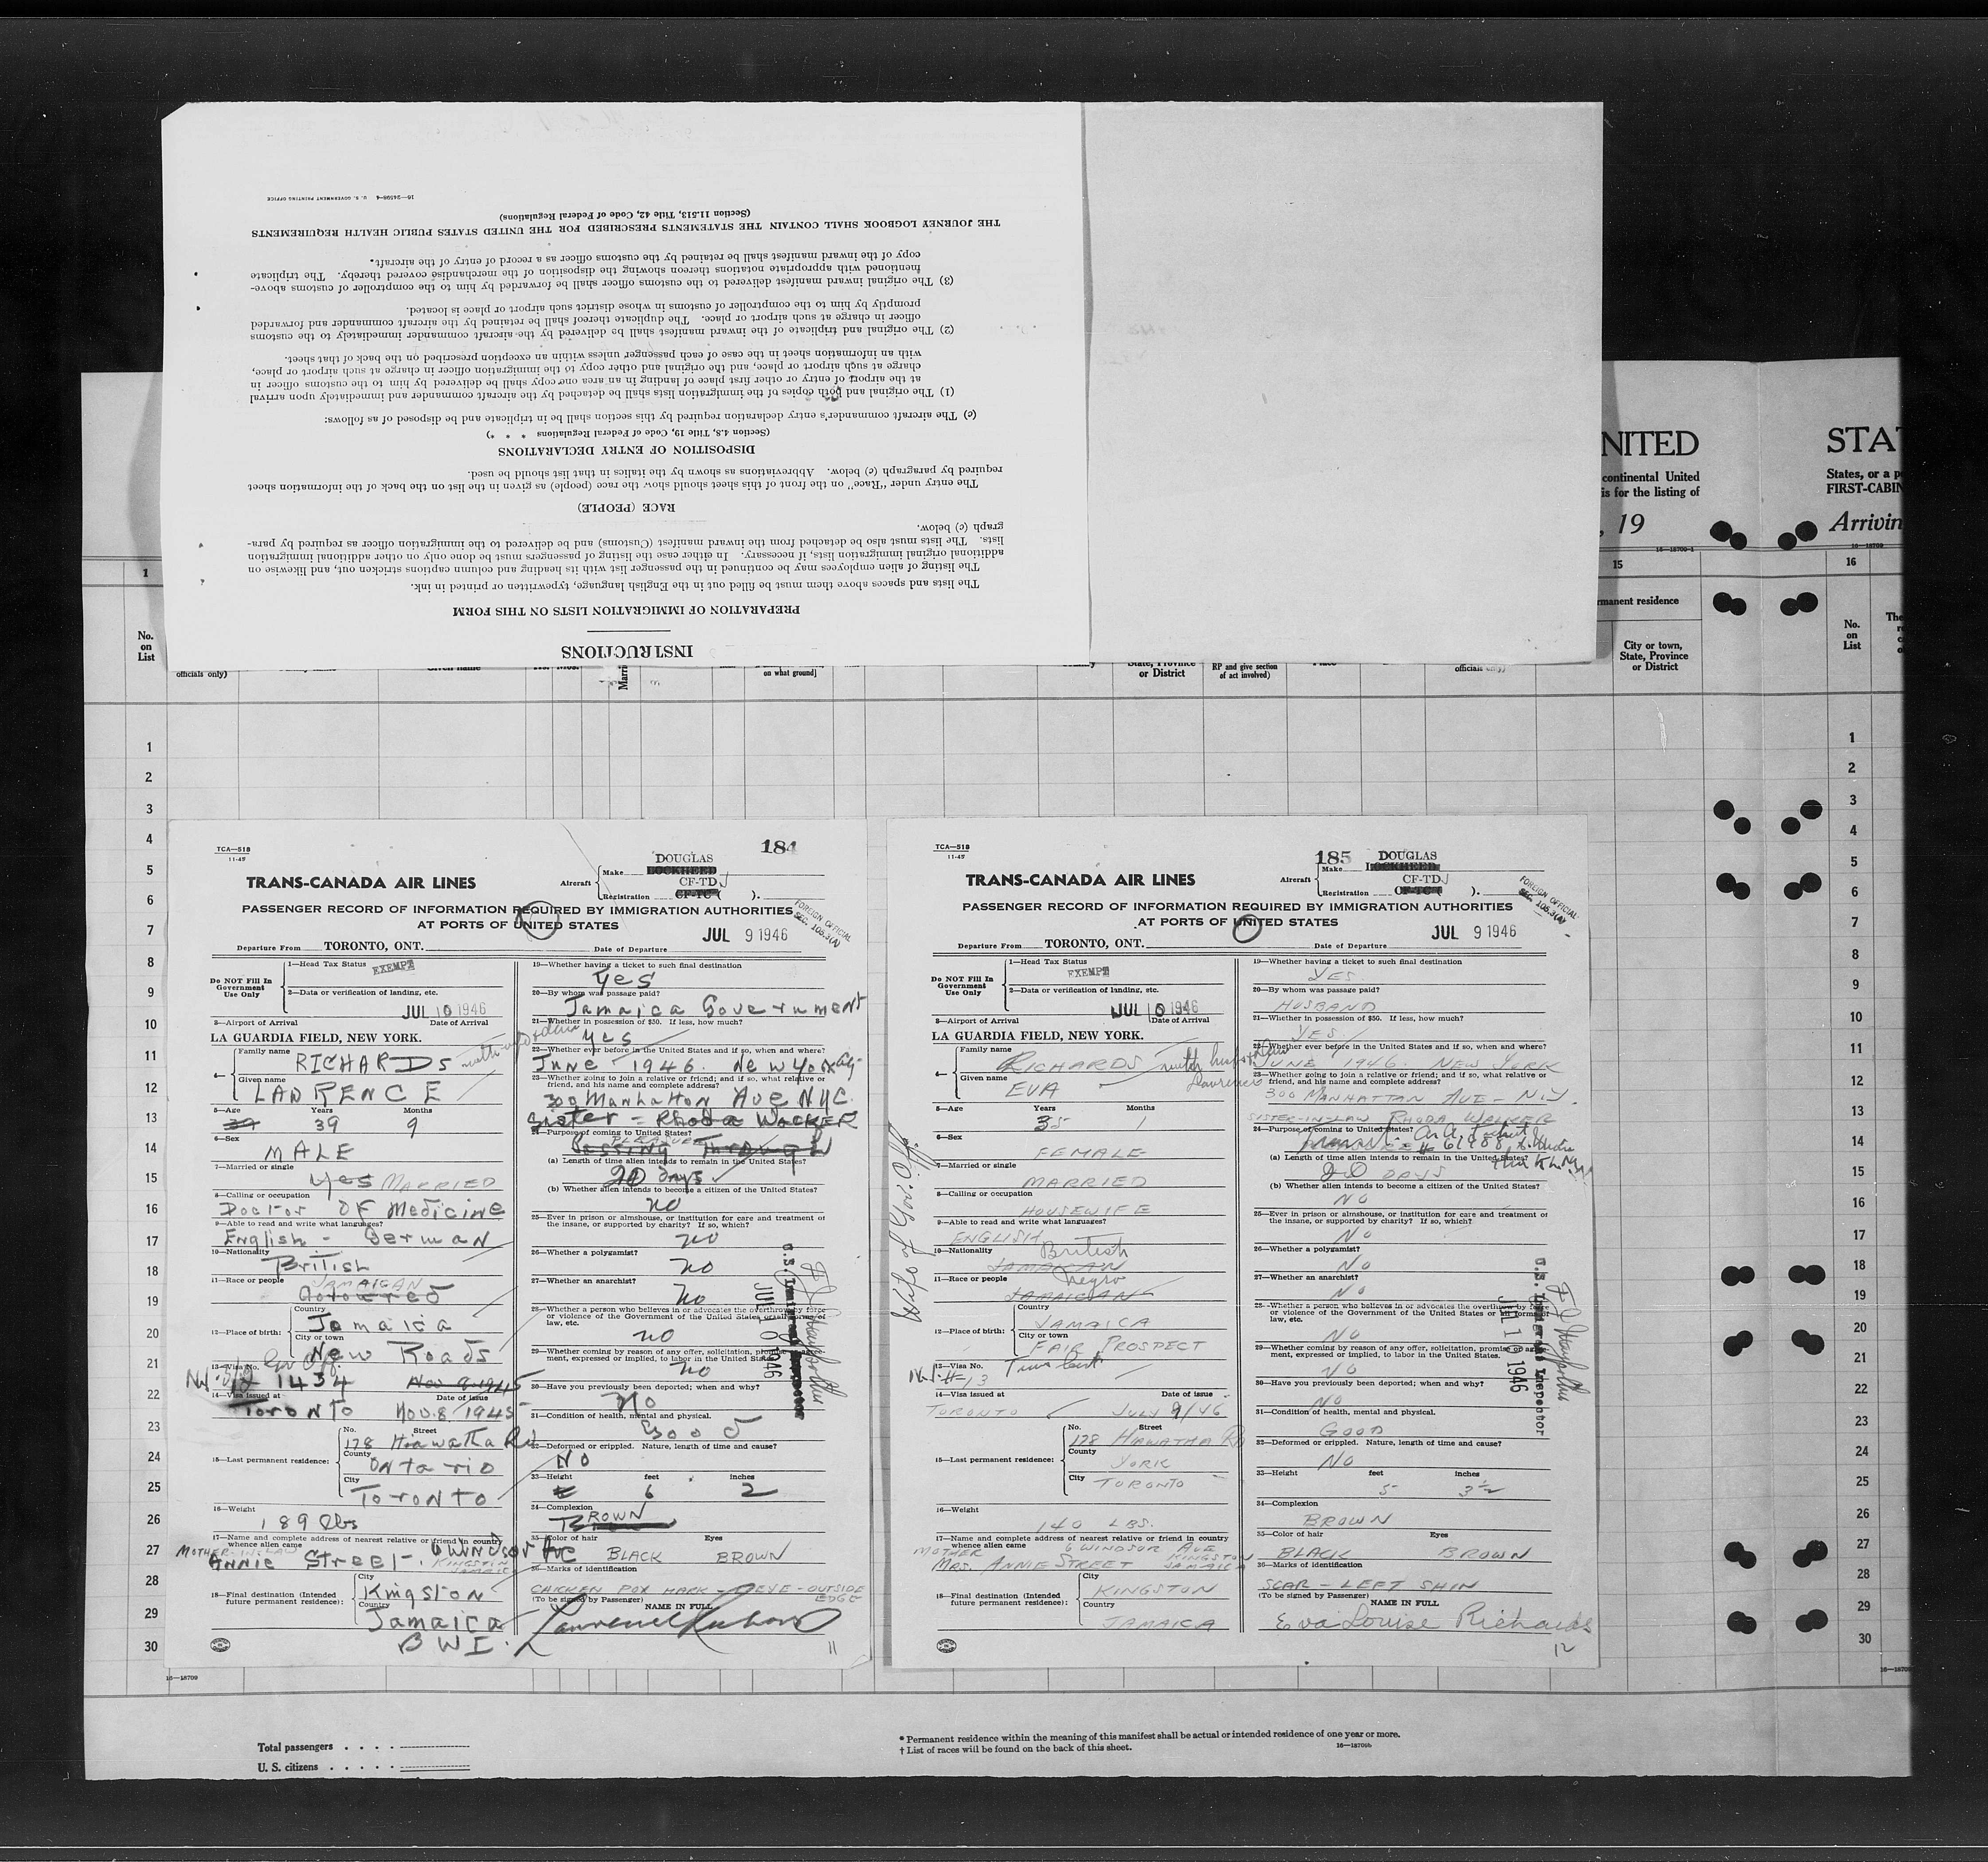 INSTRUCTIONS
PREPARATION OF IMMIGRATION LISTS ON THIS FORM
The lists and spaces above them must be filled out in the English language, typewritten or printed in ink.
The listing of alien employees may be continued in the passenger list with its heading and column captions stricken out, and likewise on
additional original immigration lists, if necessary. In either case the listing of passengers must be done only on other additional immigration
lists. The lists must also be detached from the inward manifest (Customs) and be delivered to the immigration officer as required by para-
graph (c) below.
RACE (PEOPLE)
The entry under "Race" on the front of this sheet should show the race (people) as given in the list on the back of the information sheet
required by paragraph (c) below. Abbreviations as shown by the italics in that list should be used.
DISPOSITION OF ENTRY DECLARATIONS
(Section 4.8, Title 19, Code of Federal Regulations * * *)
(c) The aircraft commander's entry declaration required by this section shall be in triplicate and be disposed of as follows:
(1) The original and both copies of the immigration lists shall be detached by the aircraft commander and immediately upon arrival
at the airport of entry or other first place of landing in an area one copy shall be delivered by him to the customs officer in
charge at such airport or place, and the original and other copy to the immigration officer in charge at such airport or place,
with an information sheet in the case of each passenger unless within an exception prescribed on the back of that sheet.
(2) The original and triplicate of the inward manifest shall be delivered by the aircraft commander immediately to the customs
officer in charge at such airport or place. The duplicate thereof shall be retained by the aircraft commander and forwarded
promptly by him to the comptroller of customs in whose district such airport or place is located.
(3) The original inward manifest delivered to the customs officer shall be forwarded by him to the comptroller of customs above-
mentioned with appropriate notations thereon showing the disposition of the merchandise covered thereby. The triplicate
copy of the inward manifest shall be retained by the customs officer as a record of entry of the aircraft.
THE JOURNEY LOGBOOK SHALL CONTAIN THE STATEMENTS PRESCRIBED FOR THE UNITED STATES PUBLIC HEALTH REQUIREMENTS
(Section 11.513, Title 42, Code of Federal Regulations)
16—24598-4 U. S. GOVERNMENT PRINTING OFFICE
NITED STA
continental United States, or a p
is for the listing of FIRST-CABIN
, 19 Arrivin
16—18709-1 16—18709
1 15 16
rmanent residence
No. on List
City or town, State, Province or District
No. on List
officials only)
Given name
on what ground]
State, Province or District
RP and give section of act involved)
officials only)
1
2
3
4
5
6
7
8
9
10
11
12
13
14
15
16
17
18
19
20
21
22
23
24
25
26
27
28
29
30
TCA—518
11-45
184
DOUGLAS
Aircraft Make LOCKHEED
CF-TDJ
Registration CF-TC-( ).
TRANS-CANADA AIR LINES
PASSENGER RECORD OF INFORMATION REQUIRED BY IMMIGRATION AUTHORITIES
AT PORTS OF UNITED STATES
FOREIGN OFFICIAL
SEC. 105.3(A)
JUL 9 1946
Departure From TORONTO, ONT. Date of Departure
Do NOT Fill In Government Use Only
1—Head Tax Status EXEMPT
2—Data or verification of landing, etc.
JUL 10 1946
3—Airport of Arrival Date of Arrival
LA GUARDIA FIELD, NEW YORK.
4— Family name RICHARDS
Given name LAWRENCE
5—Age Years Months
39 39 9
6—Sex
MALE
7—Married or single
yes MARRIED
8—Calling or occupation
Doctor OF Medicine
9—Able to read and write what languages?
English - German
10—Nationality
British
11—Race or people JAMAICAN
Coloured
12—Place of birth: Country
Jamaica
City or town
New Roads
13—Visa No. Gov Off.
1434 Nov 8 1945
14—Visa issued at Date of issue
Toronto Nov. 8/1945
15—Last permanent residence: No. Street
178 Hiawatha Rd
County
Ontario
City
Toronto
16—Weight
189 lbs
17—Name and complete address of nearest relative or friend in country whence alien came
MOTHER-IN-LAW
Annie Street - 6 Windsor Ave
KINGSTON JAMAICA
18—Final destination (Intended future permanent residence): City
Kingston
Country
Jamaica
B W I.
19—Whether having a ticket to such final destination
Yes
20—By whom was passage paid?
Jamaica Government
21—Whether in possession of $50. If less, how much?
yes
22—Whether ever before in the United States and if so, when and where?
June 1946. New York
23—Whether going to join a relative or friend; and if so, what relative or friend, and his name and complete address?
309 Manhatton Ave NYC.
Sister = Rhoda WALKER
24—Purpose of coming to United States?
PLEASURE
Passing Through
(a) Length of time alien intends to remain in the United States?
20 DAYS
(b) Whether alien intends to become a citizen of the United States?
no
25—Ever in prison or almshouse, or institution for care and treatment of the insane, or supported by charity? If so, which?
no
26—Whether a polygamist?
no
27—Whether an anarchist?
no
28—Whether a person who believes in or advocates the overthrow by force or violence of the Government of the United States or all forms of law, etc.
no
29—Whether coming by reason of any offer, solicitation, promise or agreement, expressed or implied, to labor in the United States.
no
30—Have you previously been deported; when and why?
No
31—Condition of health, mental and physical.
Good
32—Deformed or crippled. Nature, length of time and cause?
No
33—Height feet inches
6 2
34—Complexion
BROWN
35—Color of hair Eyes
BLACK BROWN
36—Marks of identification
CHICKEN POX MARK - EYE - OUTSIDE EDGE
(To be signed by Passenger) NAME IN FULL
Lawrence Richards
11
JUL 10 1946
U.S. Immigrant Inspector
TCA—518
11-45
185
DOUGLAS
Aircraft Make LOCKHEED
CF-TDJ
Registration CF-TC-( ).
TRANS-CANADA AIR LINES
PASSENGER RECORD OF INFORMATION REQUIRED BY IMMIGRATION AUTHORITIES
AT PORTS OF UNITED STATES
FOREIGN OFFICIAL
SEC. 105.3(A)
JUL 9 1946
Departure From TORONTO, ONT. Date of Departure
Do NOT Fill In Government Use Only
1—Head Tax Status EXEMPT
2—Data or verification of landing, etc.
JUL 10 1946
3—Airport of Arrival Date of Arrival
LA GUARDIA FIELD, NEW YORK.
4— Family name RICHARDS
with husband
Lawrence
Given name EVA
5—Age Years Months
35 1
6—Sex
FEMALE
7—Married or single
MARRIED
8—Calling or occupation
HOUSEWIFE
9—Able to read and write what languages?
ENGLISH
10—Nationality British
JAMAICAN
11—Race or people Negro
JAMAICAN
12—Place of birth: Country
JAMAICA
City or town
FAIR PROSPECT
13—Visa No.
14—Visa issued at Date of issue
TORONTO JULY 9/46
15—Last permanent residence: No. Street
178 HIAWATHA RD
County
YORK
City
TORONTO
16—Weight
140 LBS.
17—Name and complete address of nearest relative or friend in country whence alien came
MOTHER 6 WINDSOR AVE
MRS. ANNIE STREET KINGSTON JAMAICA
18—Final destination (Intended future permanent residence): City
KINGSTON
Country
JAMAICA
Wife of Gov. Off.
19—Whether having a ticket to such final destination
YES
20—By whom was passage paid?
HUSBAND
21—Whether in possession of $50. If less, how much?
YES
22—Whether ever before in the United States and if so, when and where?
JUNE 1946. NEW YORK
23—Whether going to join a relative or friend; and if so, what relative or friend, and his name and complete address?
300 MANHATTAN AVE - N.Y.
SISTER-IN-LAW RHODA WALKER
24—Purpose of coming to United States?
(a) Length of time alien intends to remain in the United States?
20 DAYS
(b) Whether alien intends to become a citizen of the United States?
NO
25—Ever in prison or almshouse, or institution for care and treatment of the insane, or supported by charity? If so, which?
NO
26—Whether a polygamist?
NO
27—Whether an anarchist?
NO
28—Whether a person who believes in or advocates the overthrow by force or violence of the Government of the United States or all forms of law, etc.
NO
29—Whether coming by reason of any offer, solicitation, promise or agreement, expressed or implied, to labor in the United States.
NO
30—Have you previously been deported; when and why?
NO
31—Condition of health, mental and physical.
GOOD
32—Deformed or crippled. Nature, length of time and cause?
NO
33—Height feet inches
5 3½
34—Complexion
BROWN
35—Color of hair Eyes
BLACK BROWN
36—Marks of identification
SCAR - LEFT SHIN
(To be signed by Passenger) NAME IN FULL
Eva Louise Richards
12
JUL 10 1946
U.S. Immigrant Inspector
16—18709
Total passengers . . . .
U. S. citizens . . . . .
* Permanent residence within the meaning of this manifest shall be actual or intended residence of one year or more.
† List of races will be found on the back of this sheet.
16—18709b